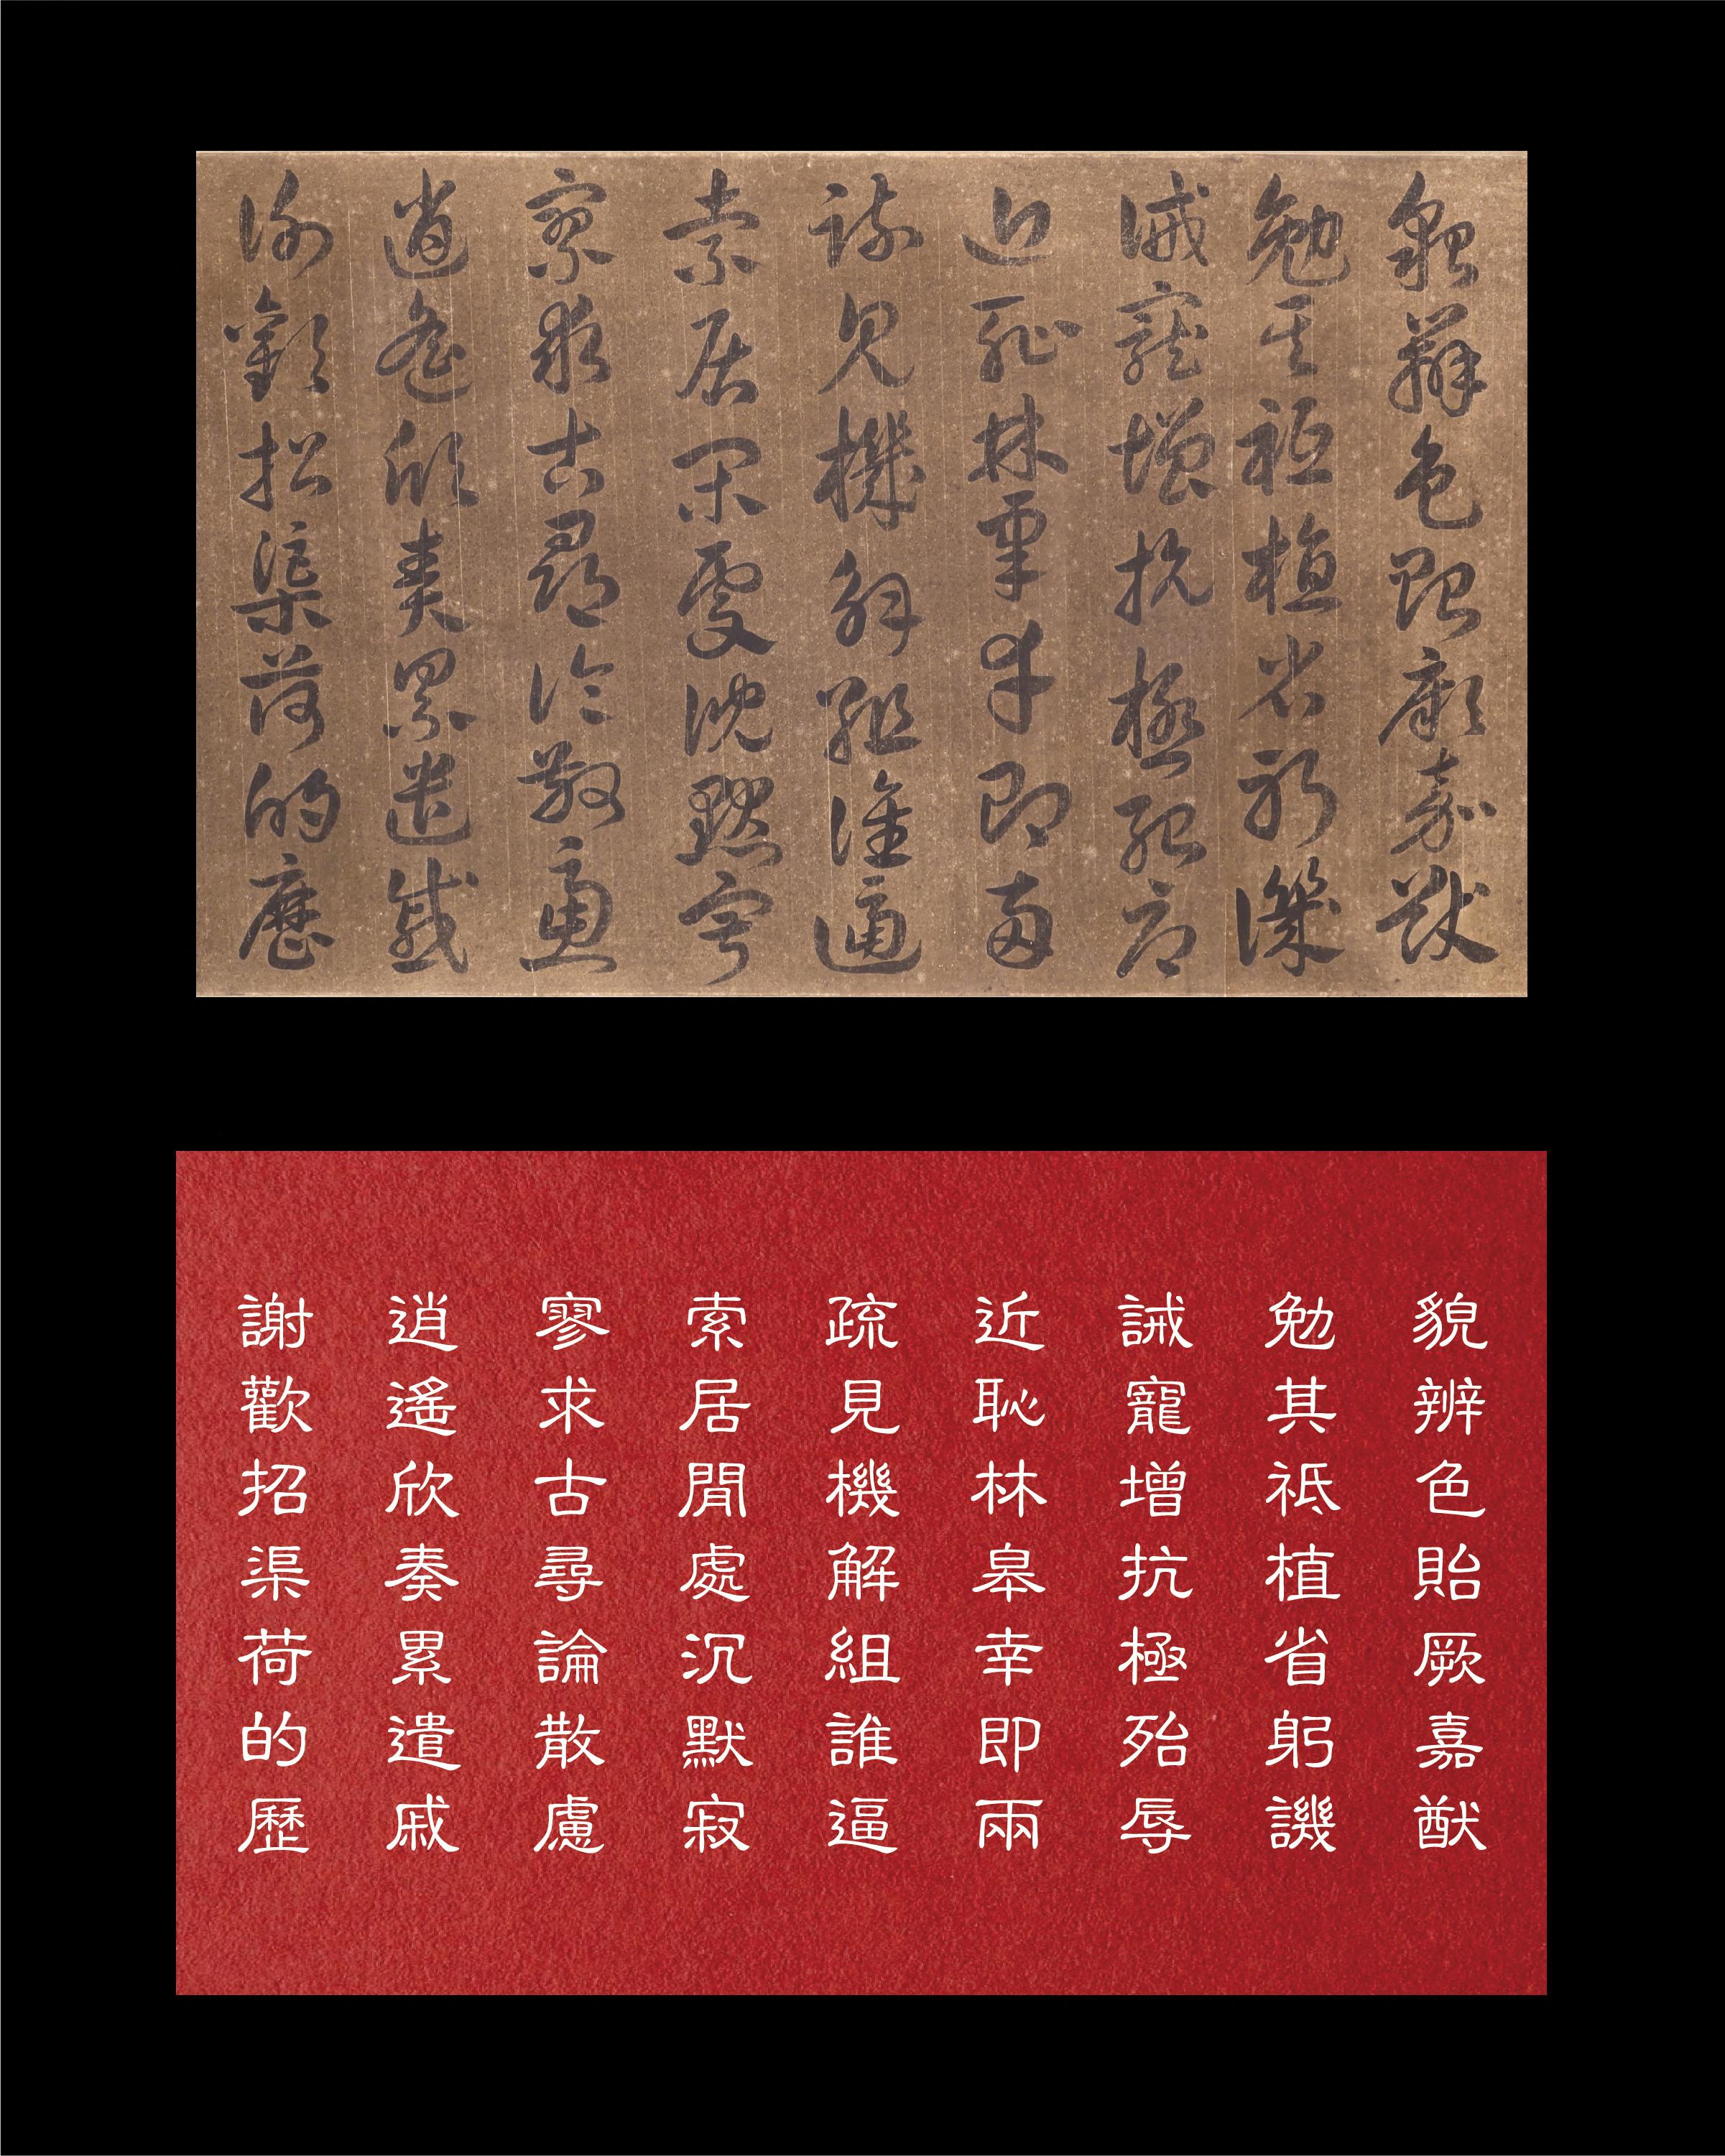 貌辨色貽厥嘉猷
勉其祗植省躬譏
誡寵增抗極殆辱
近恥林皋幸即兩
疏見機解組誰逼
索居閑處沉默寂
寥求古尋論散慮
逍遙欣奏累遣戚
謝歡招渠荷的歷
貌辨色貽厥嘉猷
勉其祗植省躬譏
誡寵增抗極殆辱
近恥林皋幸即兩
疏見機解組誰逼
索居閒處沉默寂
寥求古尋論散慮
逍遙欣奏累遣戚
謝歡招渠荷的歷